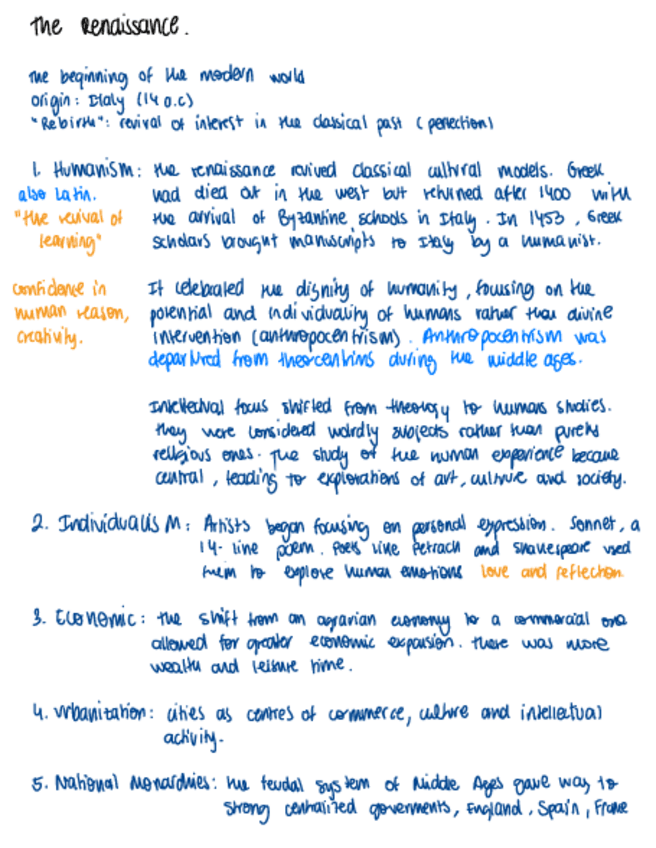 The Renaissance.
The beginning of the modern world
origin: Italy (14 o.c)
"Rebirth": revival of interest in the classical past (perfection)
1. Humanism: the renaissance revived classical cultural models. Greek
also Latin. had died out in the west but returned after 1400 with
"the revival of the arrival of Byzantine schools in Italy. In 1453, Greek
learning" scholars brought manuscripts to Italy by a humanist.
confidence in It celebrated the dignity of humanity, focusing on the
human reason, potential and individuality of humans rather than divine
creativity. intervention (anthropocentrism). Anthropocentrism was
departured from theorcentrims during the middle ages.
Intellectual focus shifted from theology to humans studies.
They were considered worldly subjects rather than purely
religious ones. The study of the human experience became
central, leading to explorations of art, culture and society.
2. Individualism: Artists began focusing on personal expression. Sonnet, a
14-line poem. Poets like Petrach and Shakespeare used
them to explore human emotions love and reflection.
3. Economic: the shift from an agrarian economy to a commercial one
allowed for greater economic expansion. There was more
wealth and leisure time.
4. Urbanization: cities as centres of commerce, culture and intellectual
activity.
5. National Monarchies: the feudal system of Middle Ages gave way to
strong centralized governments, England, Spain, France